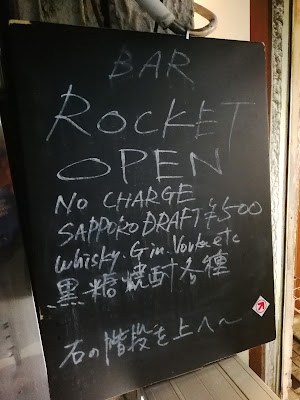 BAR
ROCKET
OPEN
NO CHARGE
SAPPORO DRAFT ¥500
Whisky. Gin. Vodka etc
黒糖焼酎各種
石の階段を上へ〜